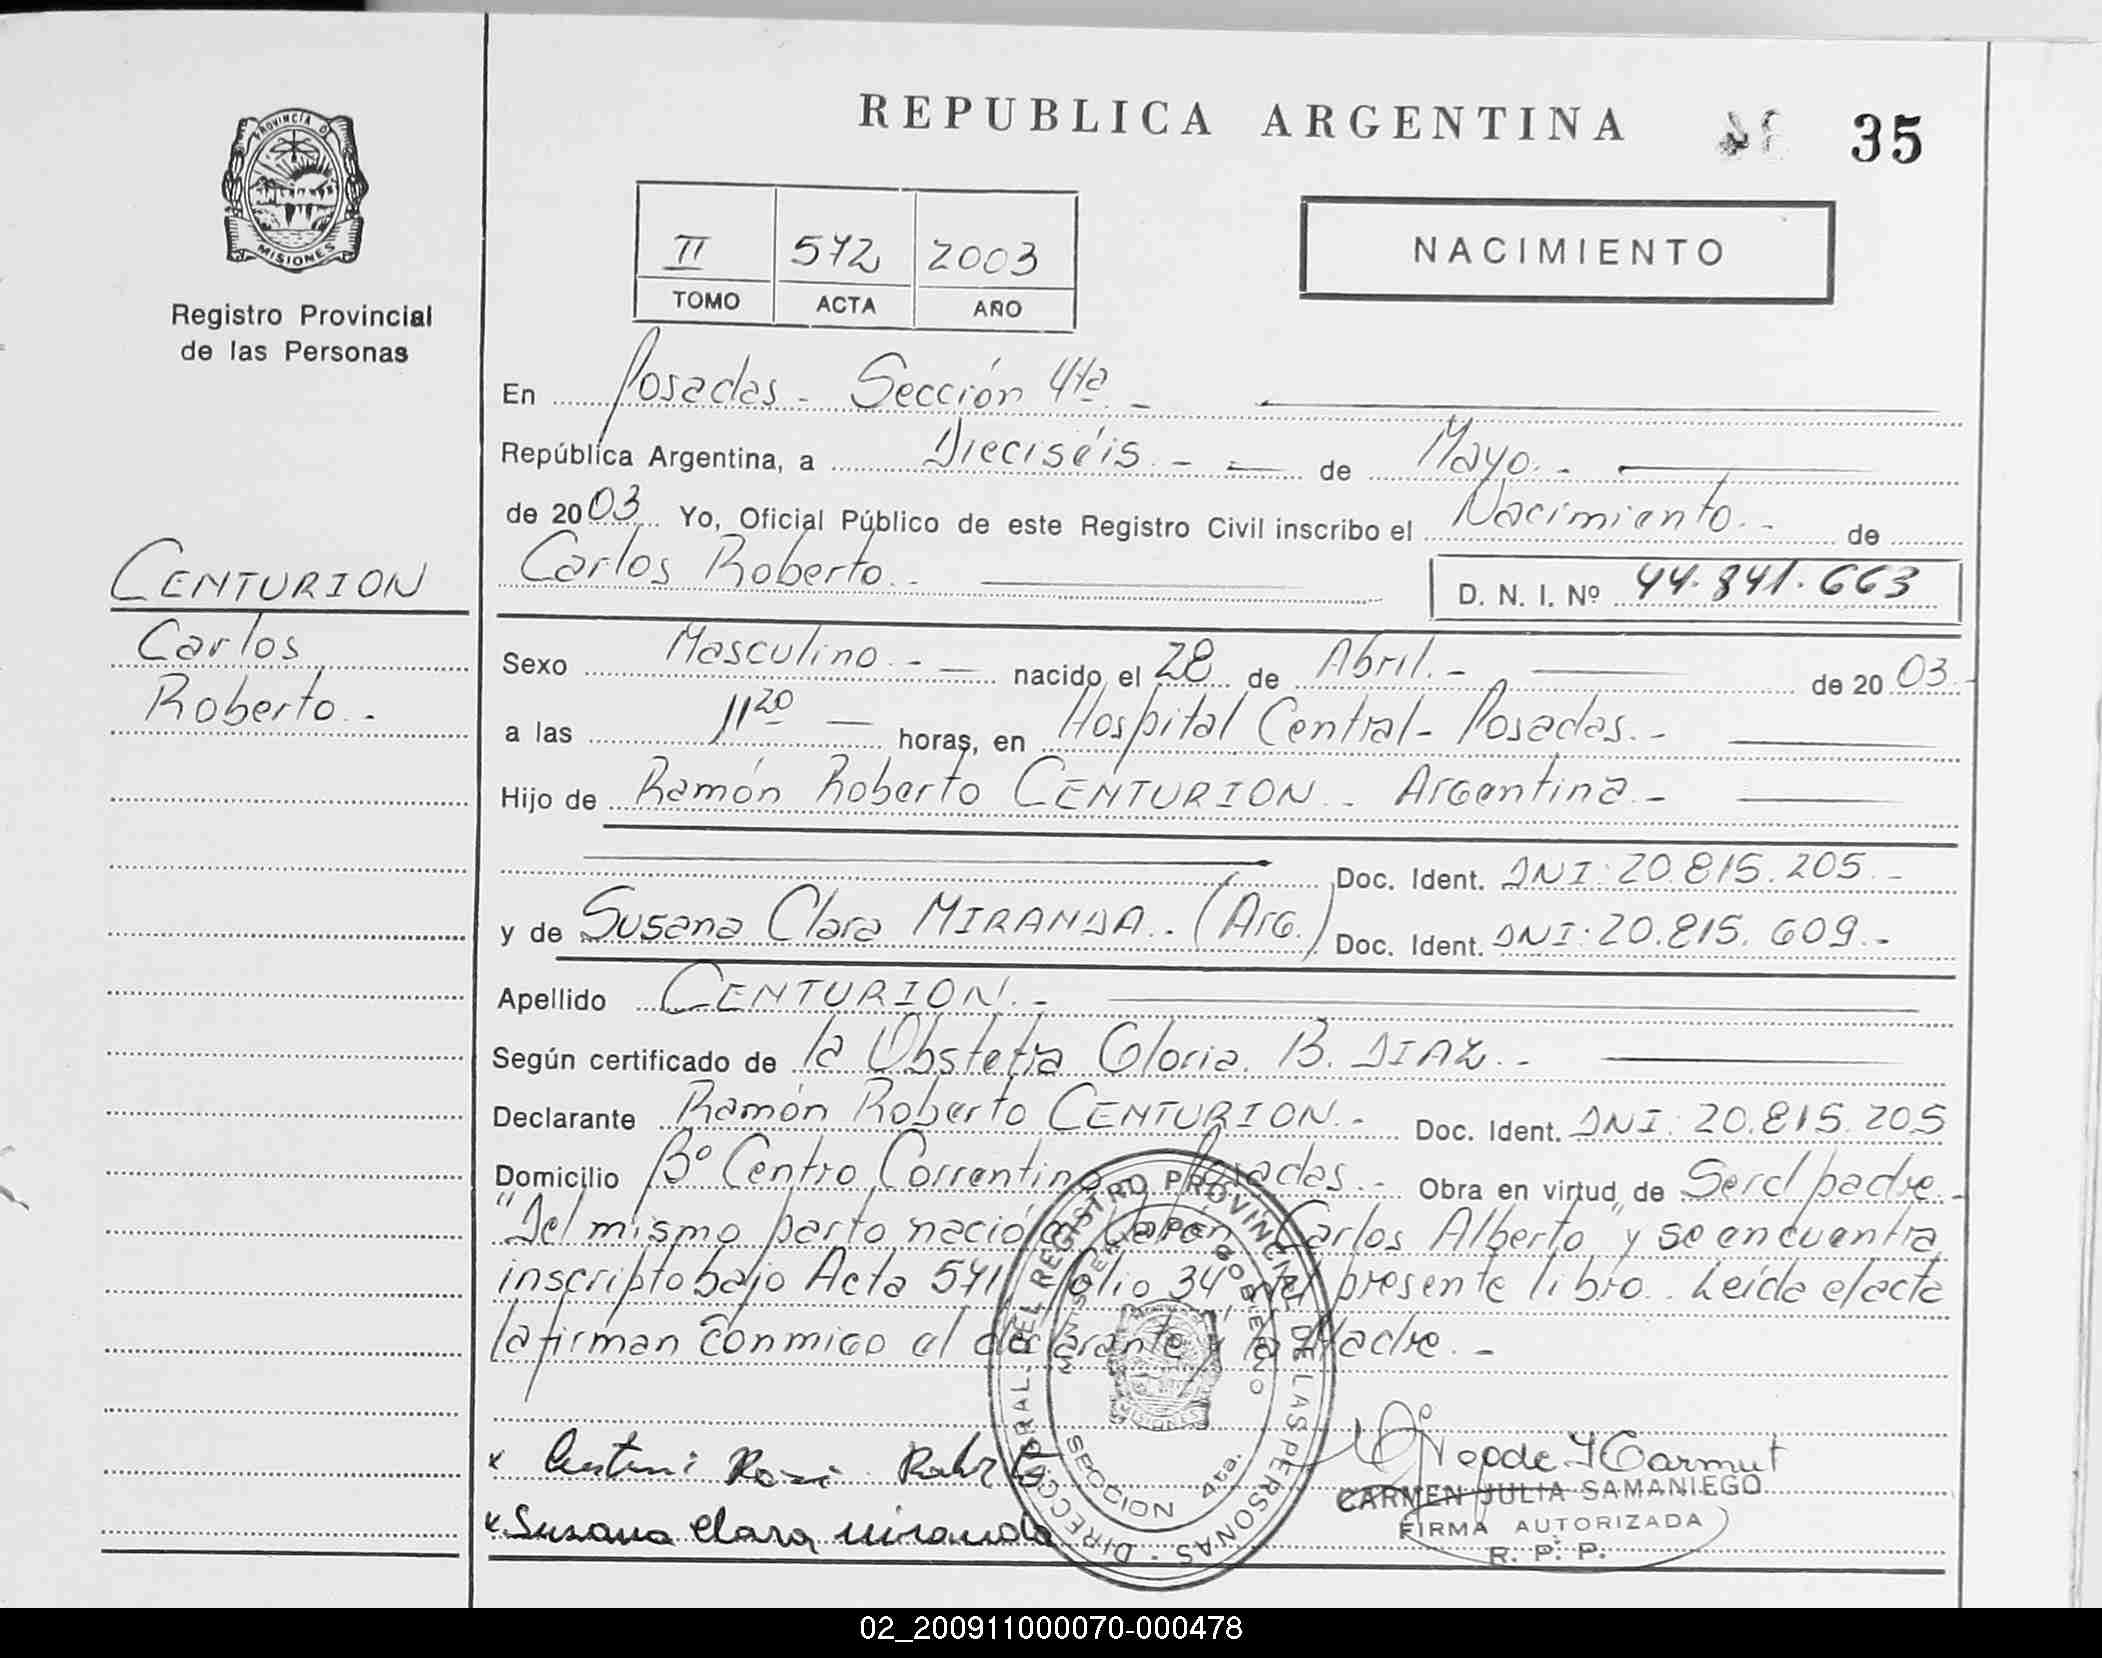 REPUBLICA ARGENTINA
35
PROVINCIA DE
MISIONES
Registro Provincial
de las Personas
II 572 2003
TOMO ACTA AÑO
NACIMIENTO
En Posadas - Sección 4ta. -
República Argentina, a Dieciséis. - de Mayo. -
de 2003. Yo, Oficial Público de este Registro Civil inscribo el Nacimiento. - de
Carlos Roberto. -
D. N. I. Nº 44.841.663
CENTURION
Carlos
Roberto. -
Sexo Masculino. - nacido el 28 de Abril. - de 2003. -
a las 11 20 horas, en Hospital Central - Posadas. -
Hijo de Ramón Roberto CENTURION. - Argentina. -
Doc. Ident. DNI: 20.815.205. -
y de Susana Clara MIRANDA. - (Arg.) Doc. Ident. DNI: 20.815.609. -
Apellido CENTURION. -
Según certificado de la Obstetra Gloria. B. DIAZ. -
Declarante Ramón Roberto CENTURION. - Doc. Ident. DNI: 20.815.205
Domicilio Bº Centro Correntino - Posadas. - Obra en virtud de Ser el padre. -
"Del mismo parto nació el Varón Carlos Alberto" y se encuentra
inscripto bajo Acta 571 folio 34º del presente libro. Leída el acta
la firman conmigo el declarante y la Madre. -
DIRECCION GRAL. DEL REGISTRO PROVINCIAL DE LAS PERSONAS
MINISTERIO DE GOBIERNO
SECCION 4ta.
MISIONES
x
x Susana Clara miranda
CARMEN JULIA SAMANIEGO
FIRMA AUTORIZADA
R. P. P.
02_200911000070-000478